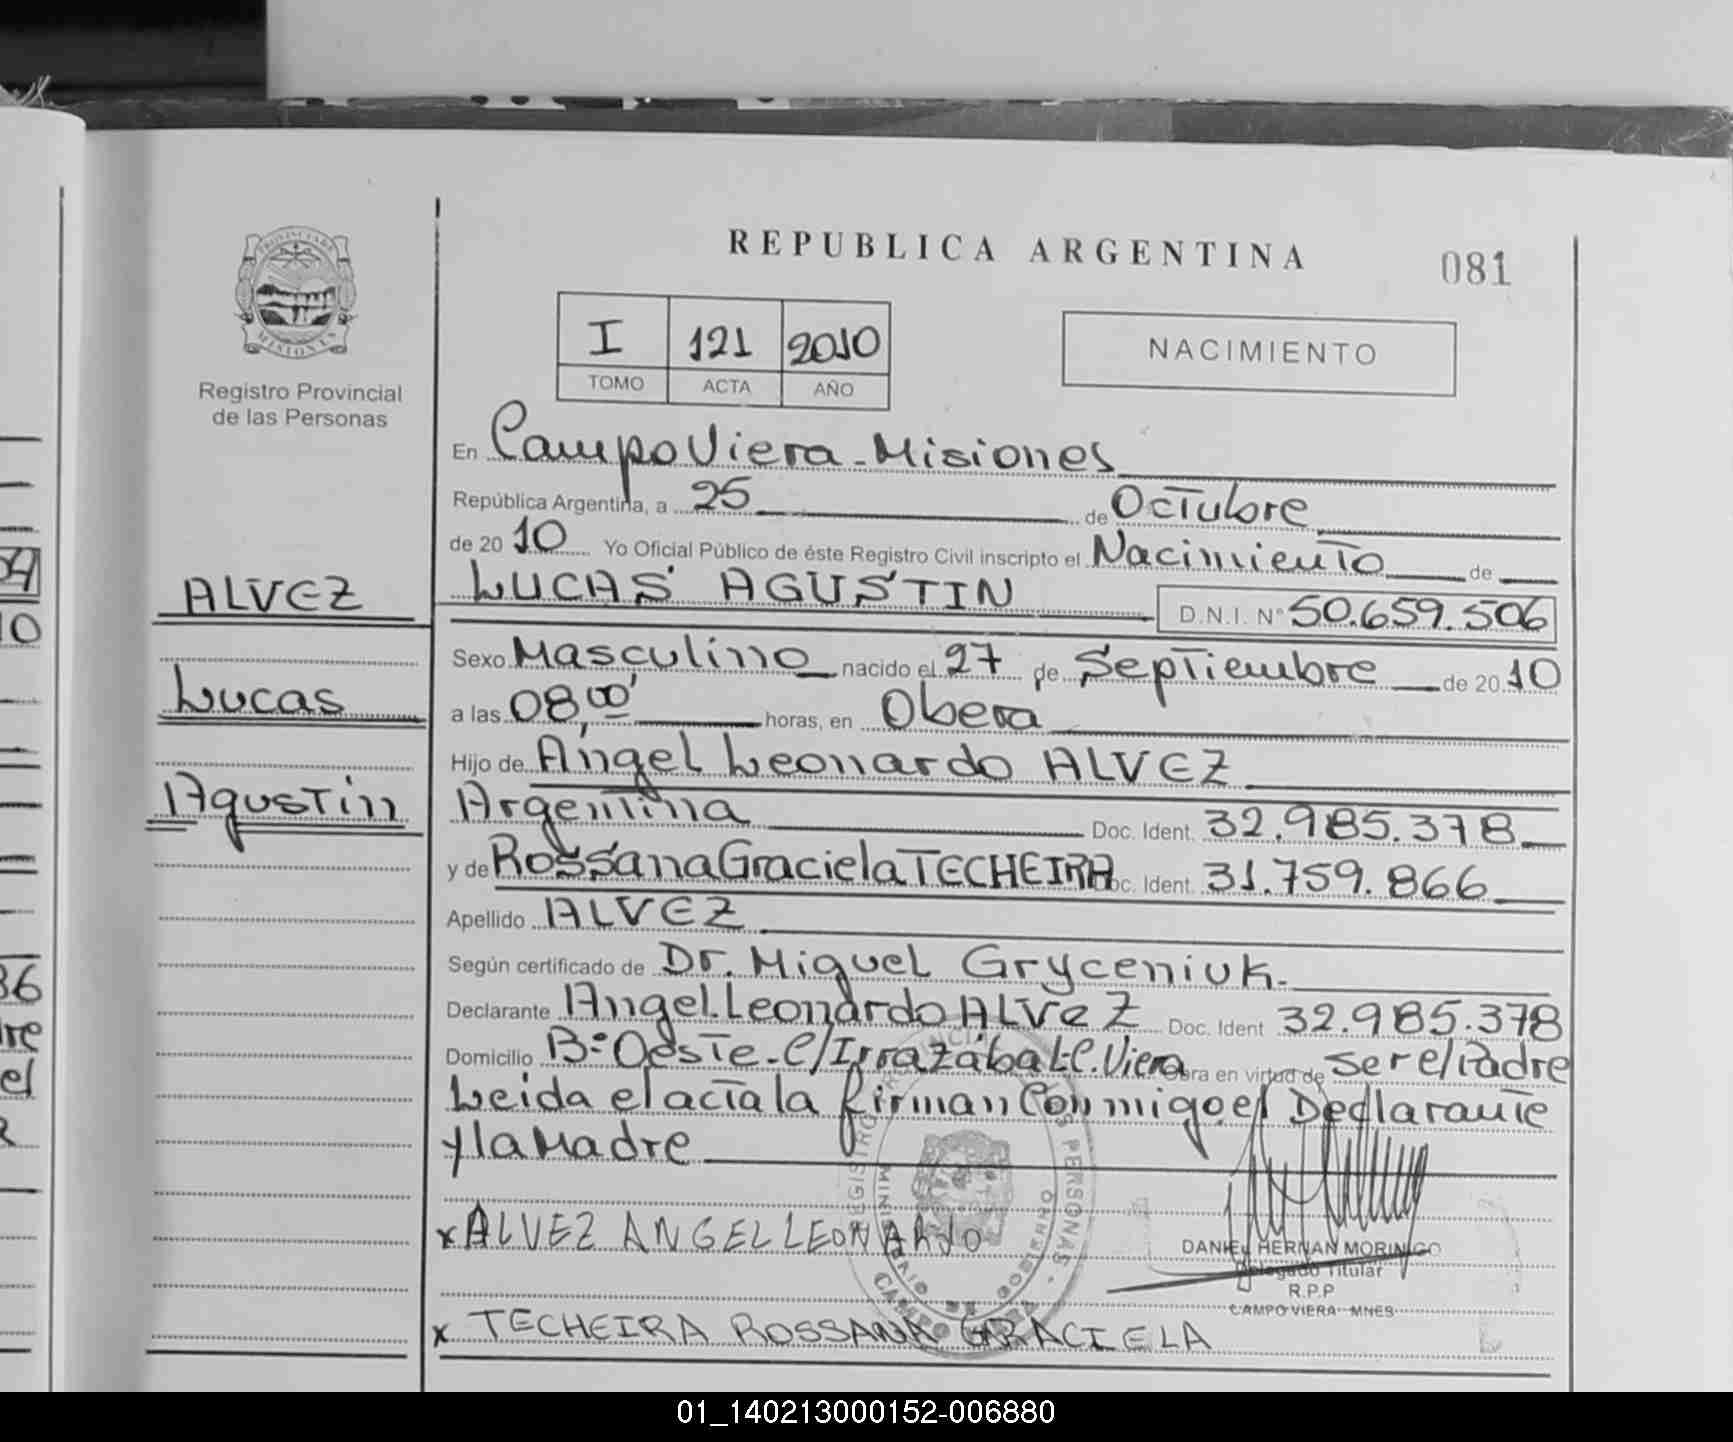 REPUBLICA ARGENTINA
081
PROVINCIA DE
MISIONES
Registro Provincial
de las Personas
I 121 2010
TOMO ACTA AÑO
NACIMIENTO
En Campo Viera - Misiones
República Argentina, a 25 de Octubre
de 20 10 Yo Oficial Público de éste Registro Civil inscripto el Nacimiento de
ALVEZ
LUCAS AGUSTIN D.N.I. N° 50.659.506
Sexo Masculino nacido el 27 de Septiembre de 20 10
Lucas
a las 08,00' horas, en Obera
Hijo de Angel Leonardo ALVEZ
Agustin
Argentina Doc. Ident. 32.985.378
y de Rossana Graciela TECHEIRA Doc. Ident. 31.759.866
Apellido ALVEZ
Según certificado de Dr. Miguel Gryceniuk.
Declarante Angel Leonardo ALVEZ Doc. Ident 32.985.378
Domicilio B° Oeste - C/Irrazábal - C. Viera Obra en virtud de ser el Padre
Leida el acta la firman Conmigo el Declarante
y la Madre
x ALVEZ ANGEL LEONARDO
DANIEL HERNAN MORINIGO
Delegado Titular
R.P.P
CAMPO VIERA - MNES
x TECHEIRA ROSSANA GRACIELA
01_140213000152-006880